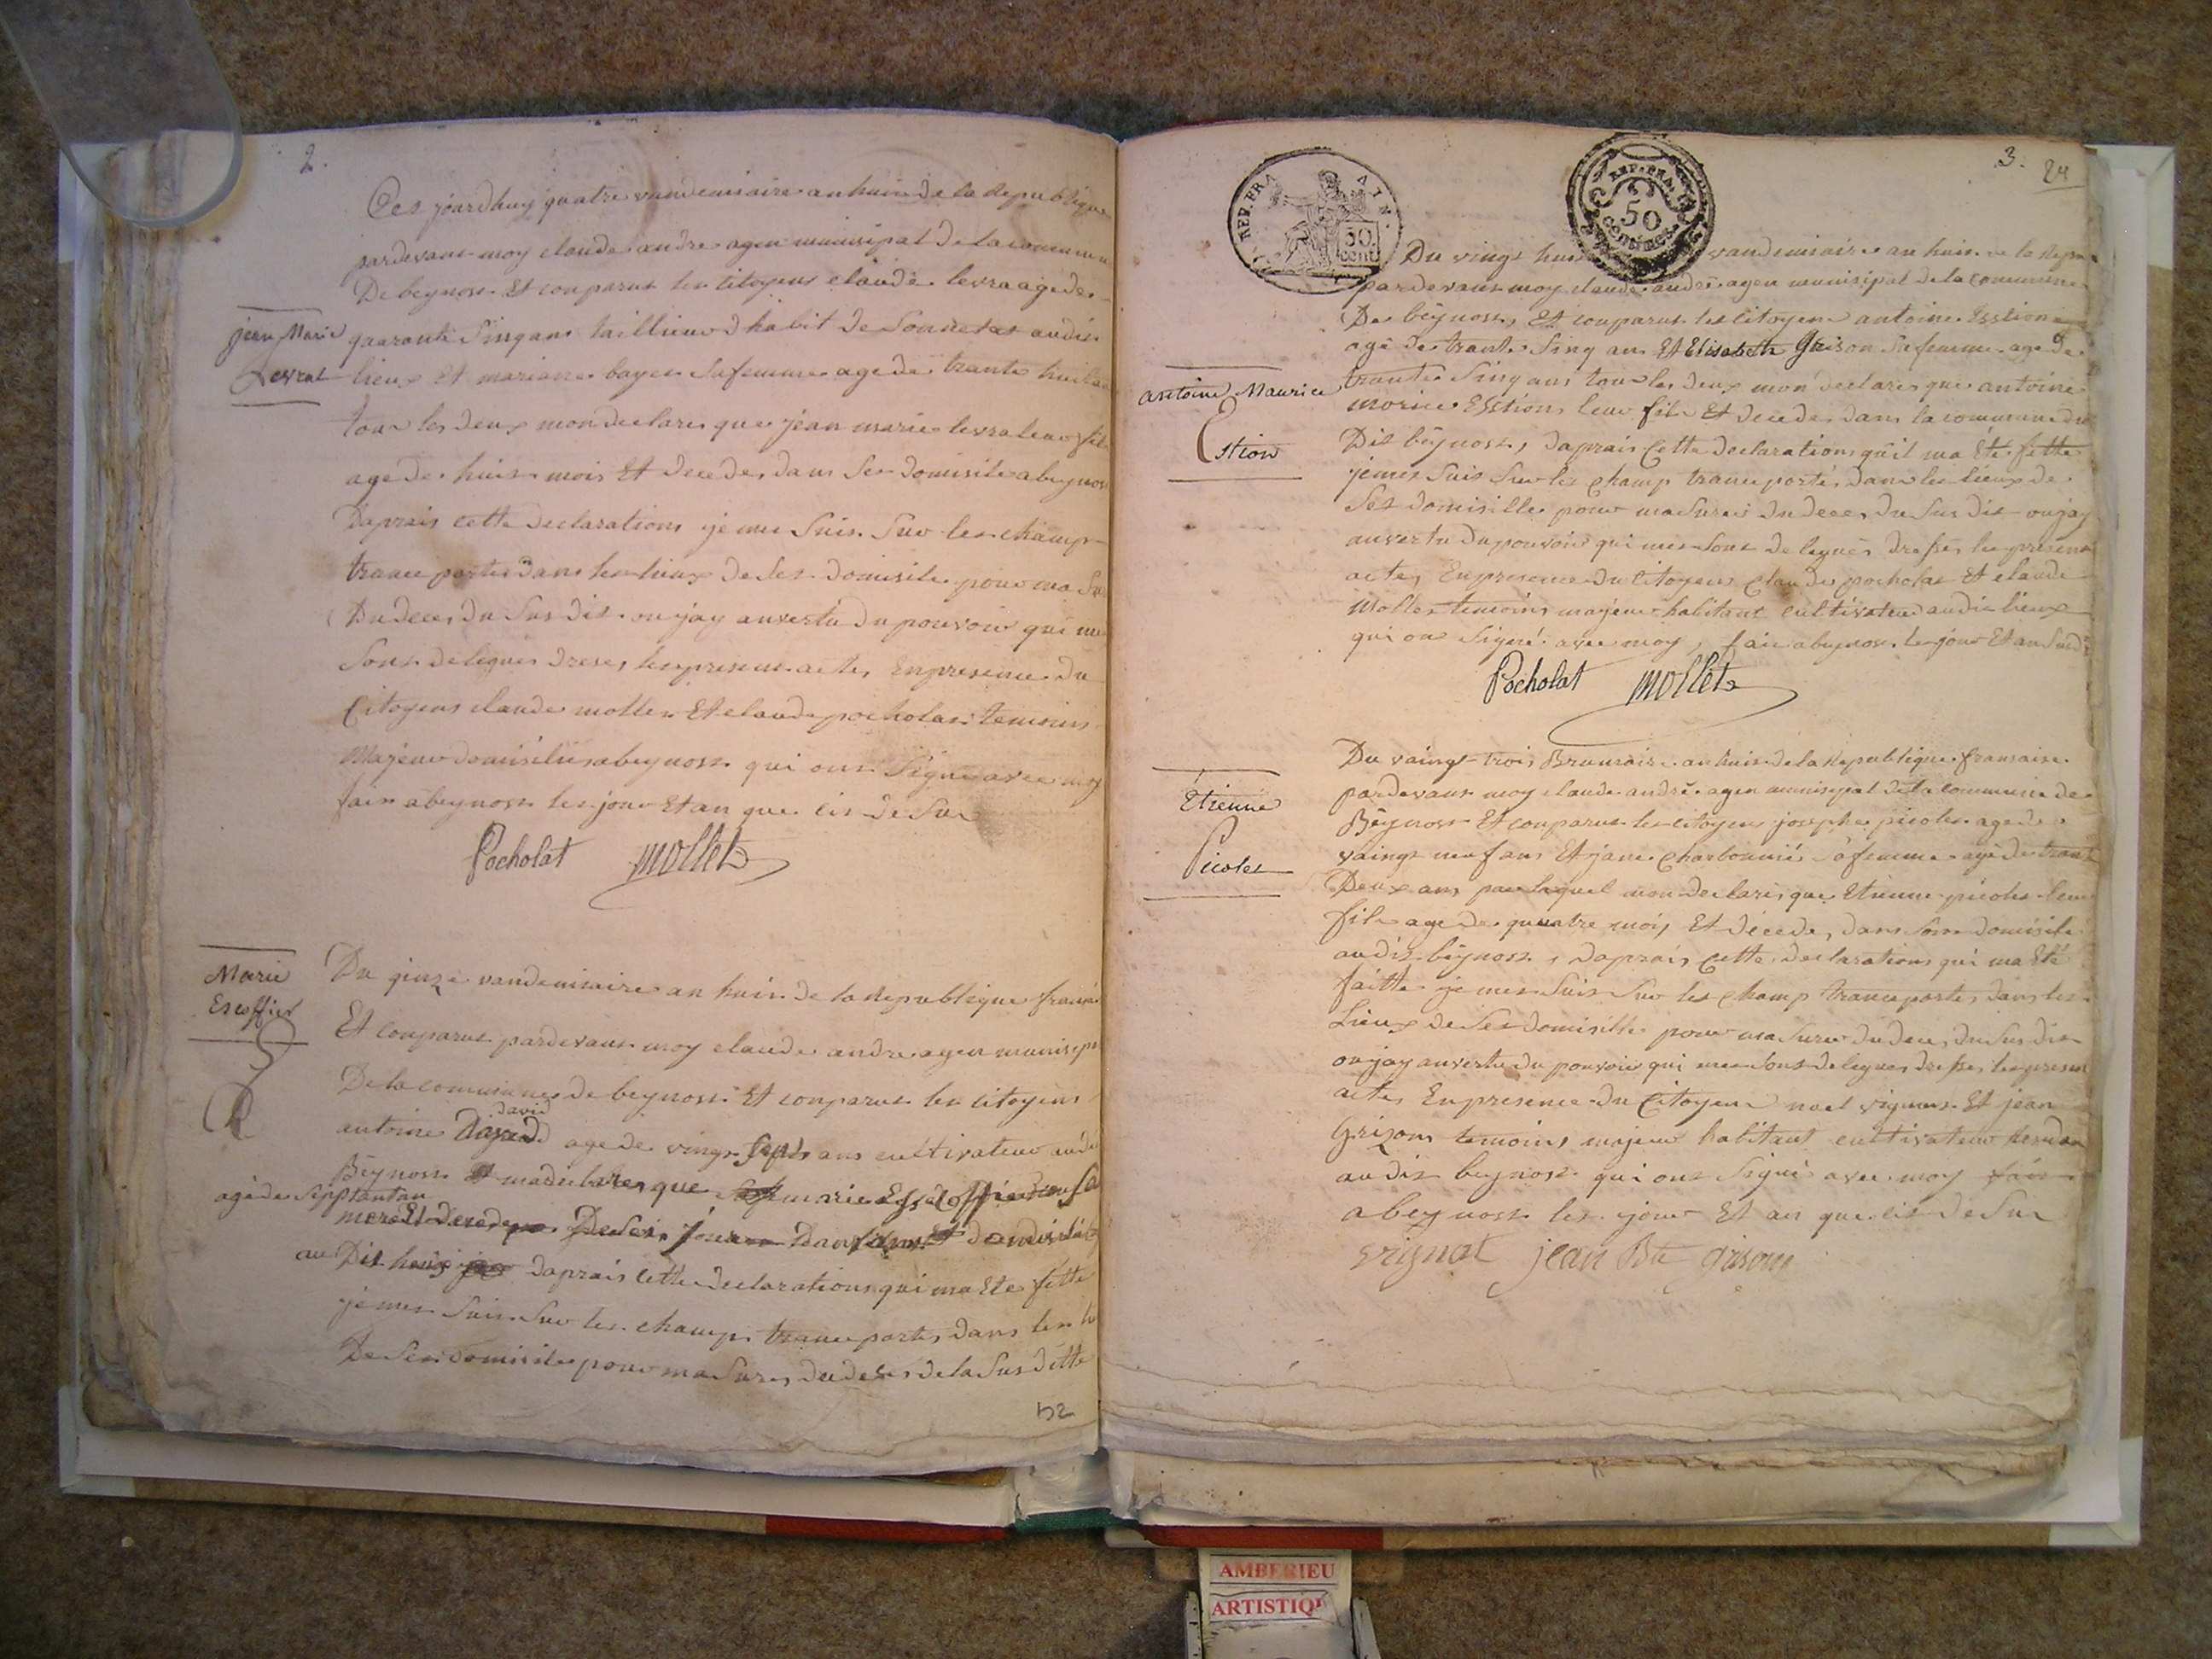 2.
Ces jourdhuy quatre vandemiaire an huis de la Republique
pardevans moy claude andre agen munisipal de la commune
De beynost Et conparus les citoyens claude levra age de
jean Marie
Levrat
quaranté sinq ans taillieur dhabit de Son audis
lieux Et mariane bayet Safemme age de trante huis an
tour les deux mon declares que jean marie levra leur fils
age de huis mois Et decede, dans Ses domisile a beynos
Daprais cette declarations je mes Suis Sur les champ
trance portes dans les lieux de Ses domisile pour ma Su
Du deces du Sus dis ou jay anvertu du pouvoir qui me
Sont delegues dreses les present actes, En presence du
Citoyens claude molles Et claude pocholas temoins
Majeur domisiliés a beynost qui ons Signe avec moy
fais a beynost les jour Et an que cis de Sur
Pocholat mollet
Marie
Escoffier
Du quinze vandemiaire an huis de la Republique franse
Et conparus pardevans moy claude andre agen munisipa
De la commune de beynost Et conparus les citoyens
david
antoine age de vings septs ans cultivateur audis
Beynost Et ma declares que marie Essecoffier Sa
age de septantan
mere Et decede De Ses jour Dans Domisile
au Dit daprais cette declarations qui ma Ete fette
je mes Suis Sur les champ trance portes dans les li
De Ses domisiles pour ma Sures du deces de la Sus ditte
52
3.
24
REP. FRA
50
cent
REP. FRA.
50
Centimes
Du vings huis vandemiaire an huis de la Repu
pardevans moy claude andré agen munisipal de la commune
De béynost, Et conparus les citoyens antoine Esstion
agé de trante Sinq ans Et Elisabeth Grison Safemme age de
antoine Maurice
Estion
trante Sinq ans tour les deux mon declares que antoine
morice Esstions leur fils Et decede, dans la commune du
Dis béynost, daprais Cette declarations quil ma Eté fette
jemes Suis Sur les champ trance portés dans les lieux de
Ses domisille pour ma Surer du deces du Sus dis ou jay
anvertu du pouvoir qui mes Sont delegués dresses les presens
actes, En presence du Citoyens Claude pocholat Et claude
Molles temoins majeur habitans cultivateur audis lieux
qui ons Signé avec moy, fais a beynos les jour Et an Sudi
Pocholat mollet
Du vaings trois Brumaire an huis de la Republique fransaise
pardevans moy claude andré agen munisipal de la commune de
Étienne
Picoles
Béynost Et conparus les citoyens josephe picoles age de
vaings neuf ans Et jane charbonnié Safemme agé de trant
Deux ans par lequel mon declares que Etienne picoles leur
fils age de quuatre mois Et décéde, dans Son domisile
audis béynost, daprais cette declarations qui ma Eté
faitte je mes Suis Sur les champ trance portes dans les
Lieux de Ses domisille pour ma Surer du deces du Sus dis
ou jay anvertu du pouvoir qui mes Sont delegues dresses les presens
actes En presence du Citoyens noel vignas Et jean
Grizons temoins majeur habitant cultivateur
audis beynost qui ons Signé avec moy fais
a beynost les jour Et an que cis de Sur
vrignat jean Bte grison
AMBERIEU
ARTISTIQU